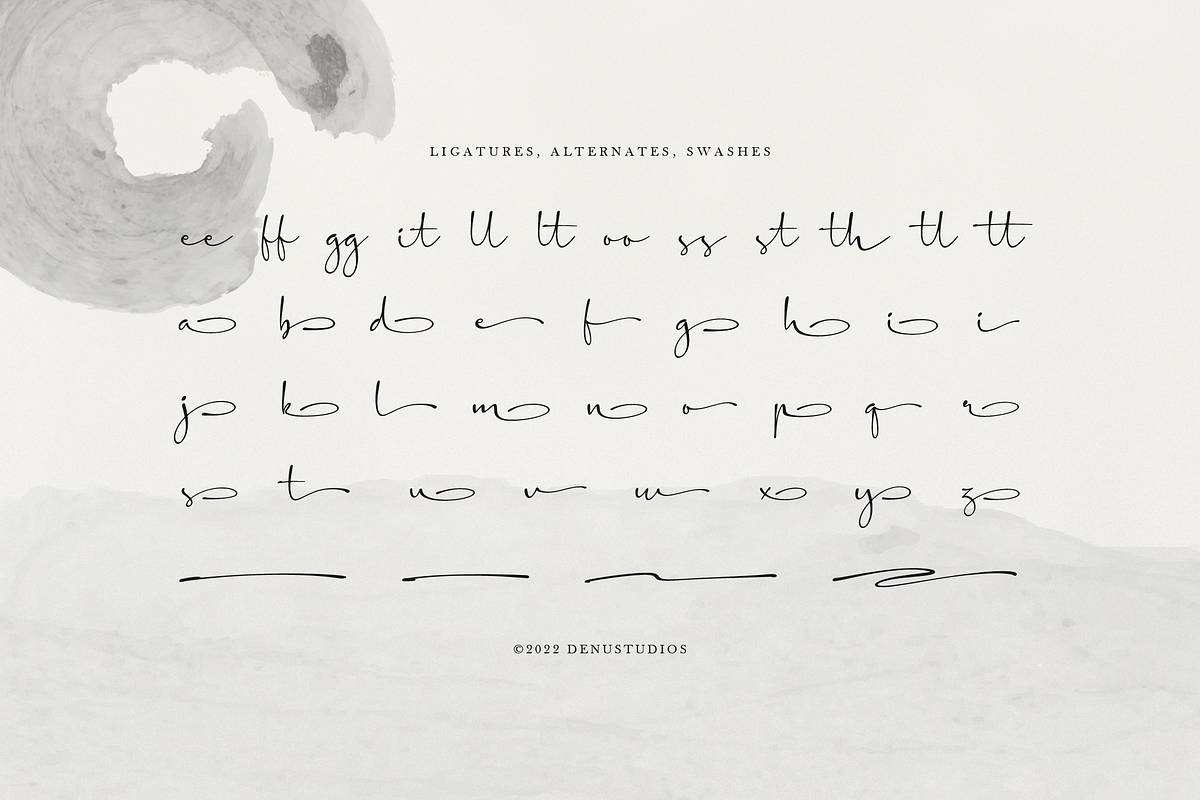 LIGATURES, ALTERNATES, SWASHES
ee ff gg it ll lt oo ss st th tl tt
a b d e f g h i i
j k l m n o p q r
s t u v w x y z
©2022 DENUSTUDIOS